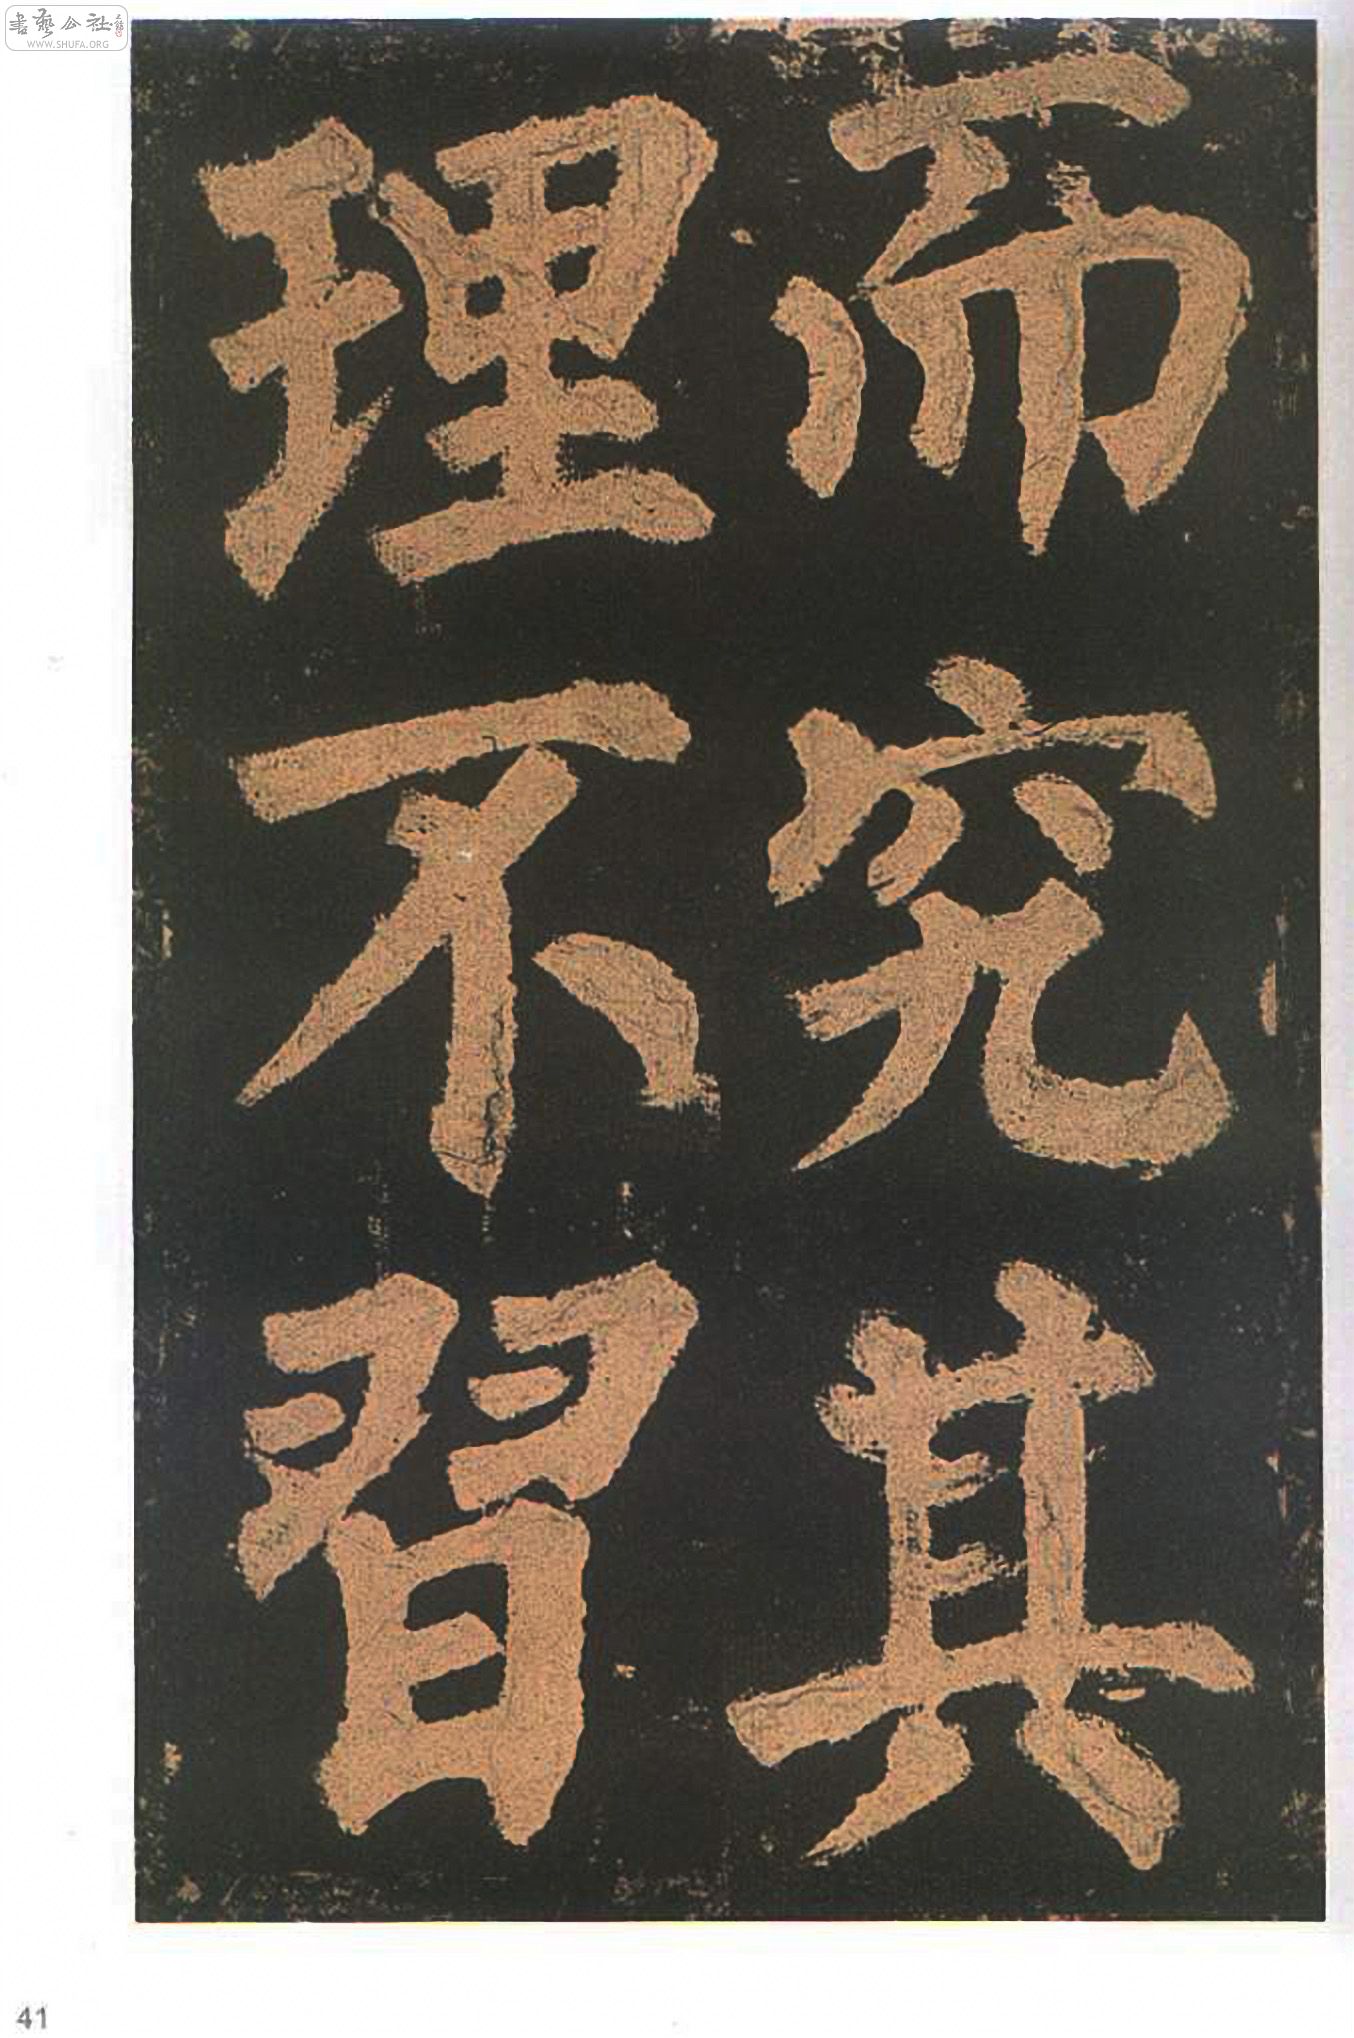 而究其
理不習
書藝公社
WWW.SHUFA.ORG
41